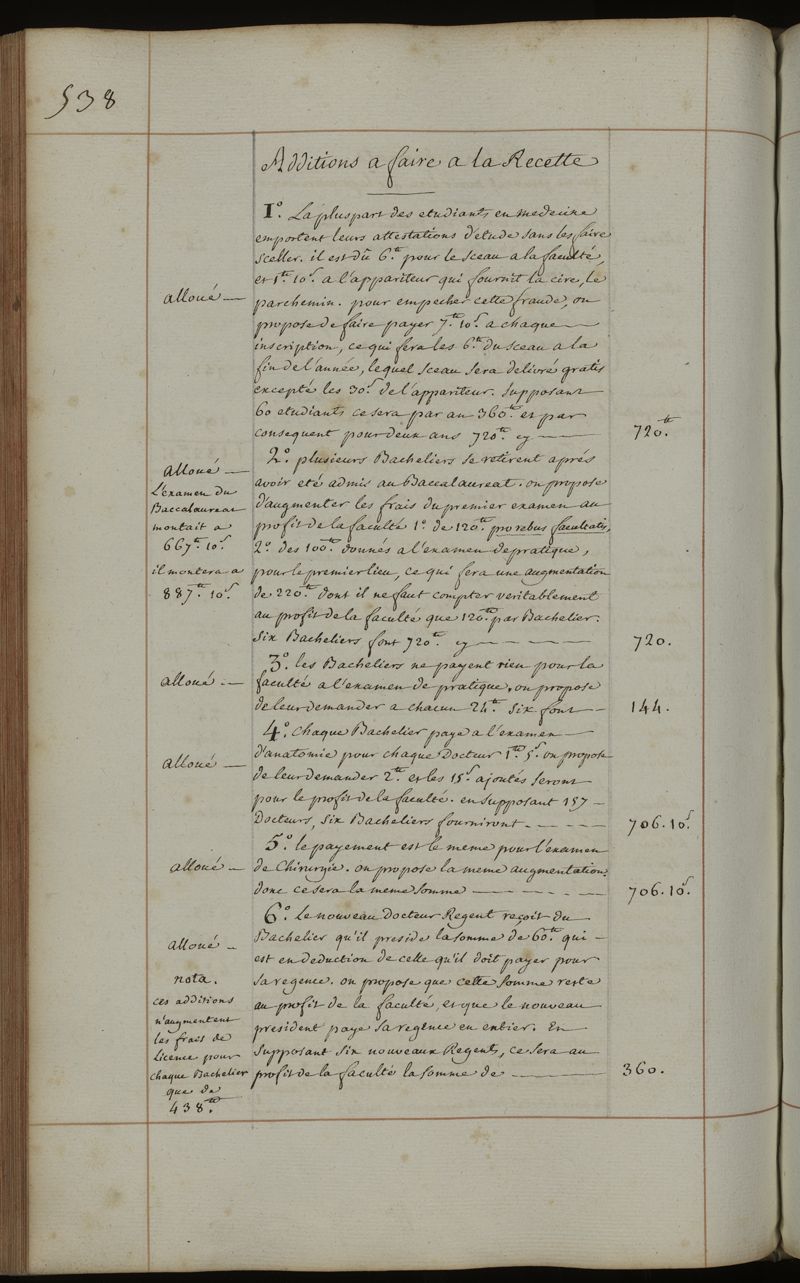 538
Additions a faire a la Recette
1°. La pluspart des etudiants en medecine
emportent leurs attestations d'etude sans les faire
Sceller. il est dû 6.tt pour le Sceau a la faculté,
et 1.tt 10.s a l'appariteur qui fournit la cire, le
alloué —
parchemin. pour empecher cette fraude, on
propose de faire payer 7.tt 10.s a chaque —
inscription, ce qui fera les 6.tt du sceau a la
fin de l'année, lequel Sceau sera delivré gratis
excepté les 30.s de l'appariteur. Supposant
60 etudiants ce sera par an 360.tt et par
consequent pour deux ans 720.tt cy — 720.tt
2.° plusieurs Bacheliers se retirent aprés
alloué —
avoir eté admis au Baccalaureat. on propose
L'examen du
Baccalaureat
montait a
667.tt 10.s
il montera a
887.tt 10.s
d'augmenter les frais du premier examen au
profit de la faculté 1.° de 120.tt pro rebus facultatis,
2.° des 100.tt donnés a l'examen de pratique,
pour le premier lieu, ce qui fera une augmentation
de 220.tt dont il ne faut compter veritablement
au profit de la faculté que 120.tt par Bachelier.
Six Bacheliers font 720.tt cy — — — — 720.
3.° les Bacheliers ne payent rien pour la
alloué —
faculté a l'examen de pratique, on propose
de leur demander a chacun 24.tt Six font — 144.
4.° Chaque Bachelier paye a l'examen —
alloué —
d'anatomie pour chaque Docteur 1.tt 5.s on propose
de leur demander 2.tt et les 15.s ajoutés seront
pour le profit de la faculté. en supposant 157 —
Docteurs, Six Bacheliers fourniront — — — — 706.10.s
5.° le payement est le meme pour l'examen
alloué —
de Chirurgie. on propose la meme augmentation.
donc ce sera la meme Somme — — — — 706.10.s
6.° Le nouveau Docteur Regent reçoit du
alloué —
Bachelier qu'il preside la somme de 60.tt qui —
est en deduction de celle qu'il doit payer pour
sa regence. on propose que cette Somme reste
au profit de la faculté, et que le nouveau
president paye sa regence en entier. En
Supposant Six nouveaux Regents, ce sera au
profit de la faculté la Somme de — 360.
nota.
ces additions
n'augmentent
les frais de
Licence pour
chaque Bachelier
que de
438.tt